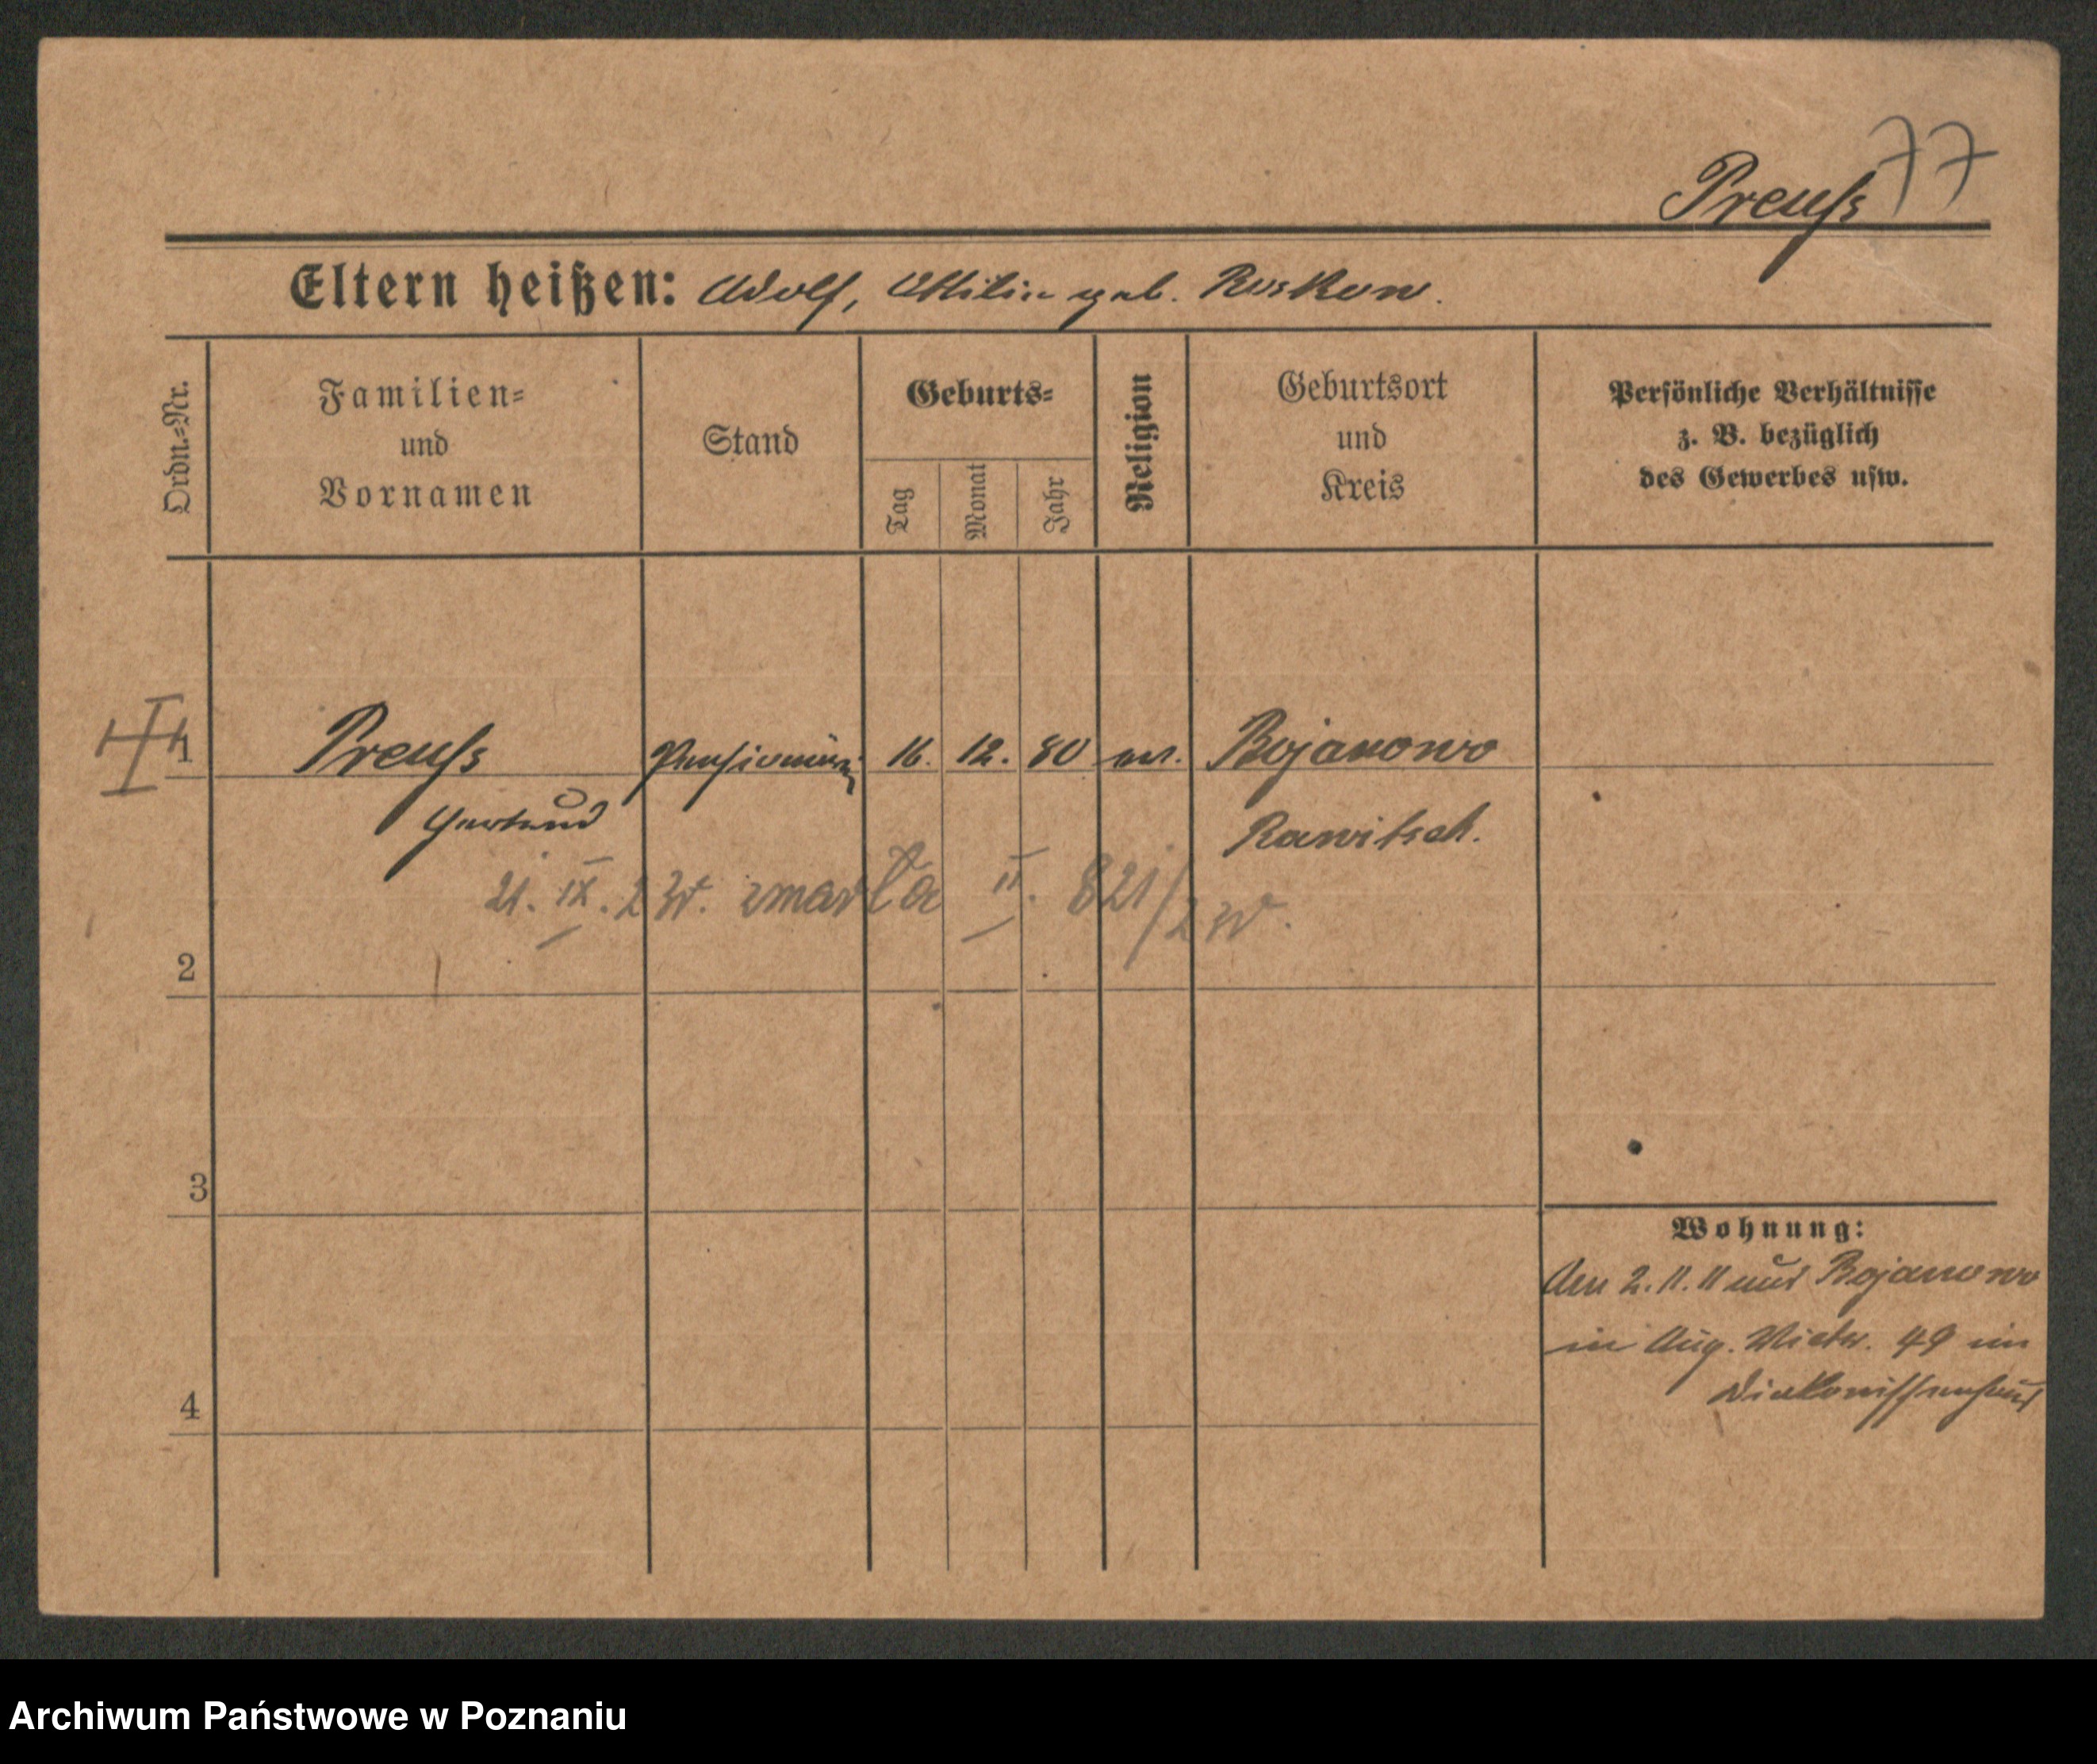 77
Preuſs
Eltern heißen: Adolf, Ottilie geb. Ruskow.
Ordn.-Nr.
Familien-
und
Vornamen
Stand
Geburts-
Tag
Monat
Jahr
Religion
Geburtsort
und
Kreis
Persönliche Verhältnisse
z. B. bezüglich
des Gewerbes usw.
1 Preuſs Pensionärin 16. 12. 80 ev. Bojanowo
Gertrud Rawitsch.
21. IX. 23r. zmarła II. 821/23r.
2
3
4
Wohnung:
Am 2. 11. 11 aus Bojanowo
in Aug. Victor. 49 im
Diakonissenhaus
Archiwum Państwowe w Poznaniu